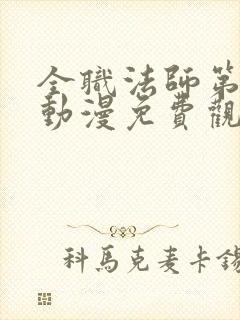 全職法師第
動漫免費觀
科馬克麦卡錫